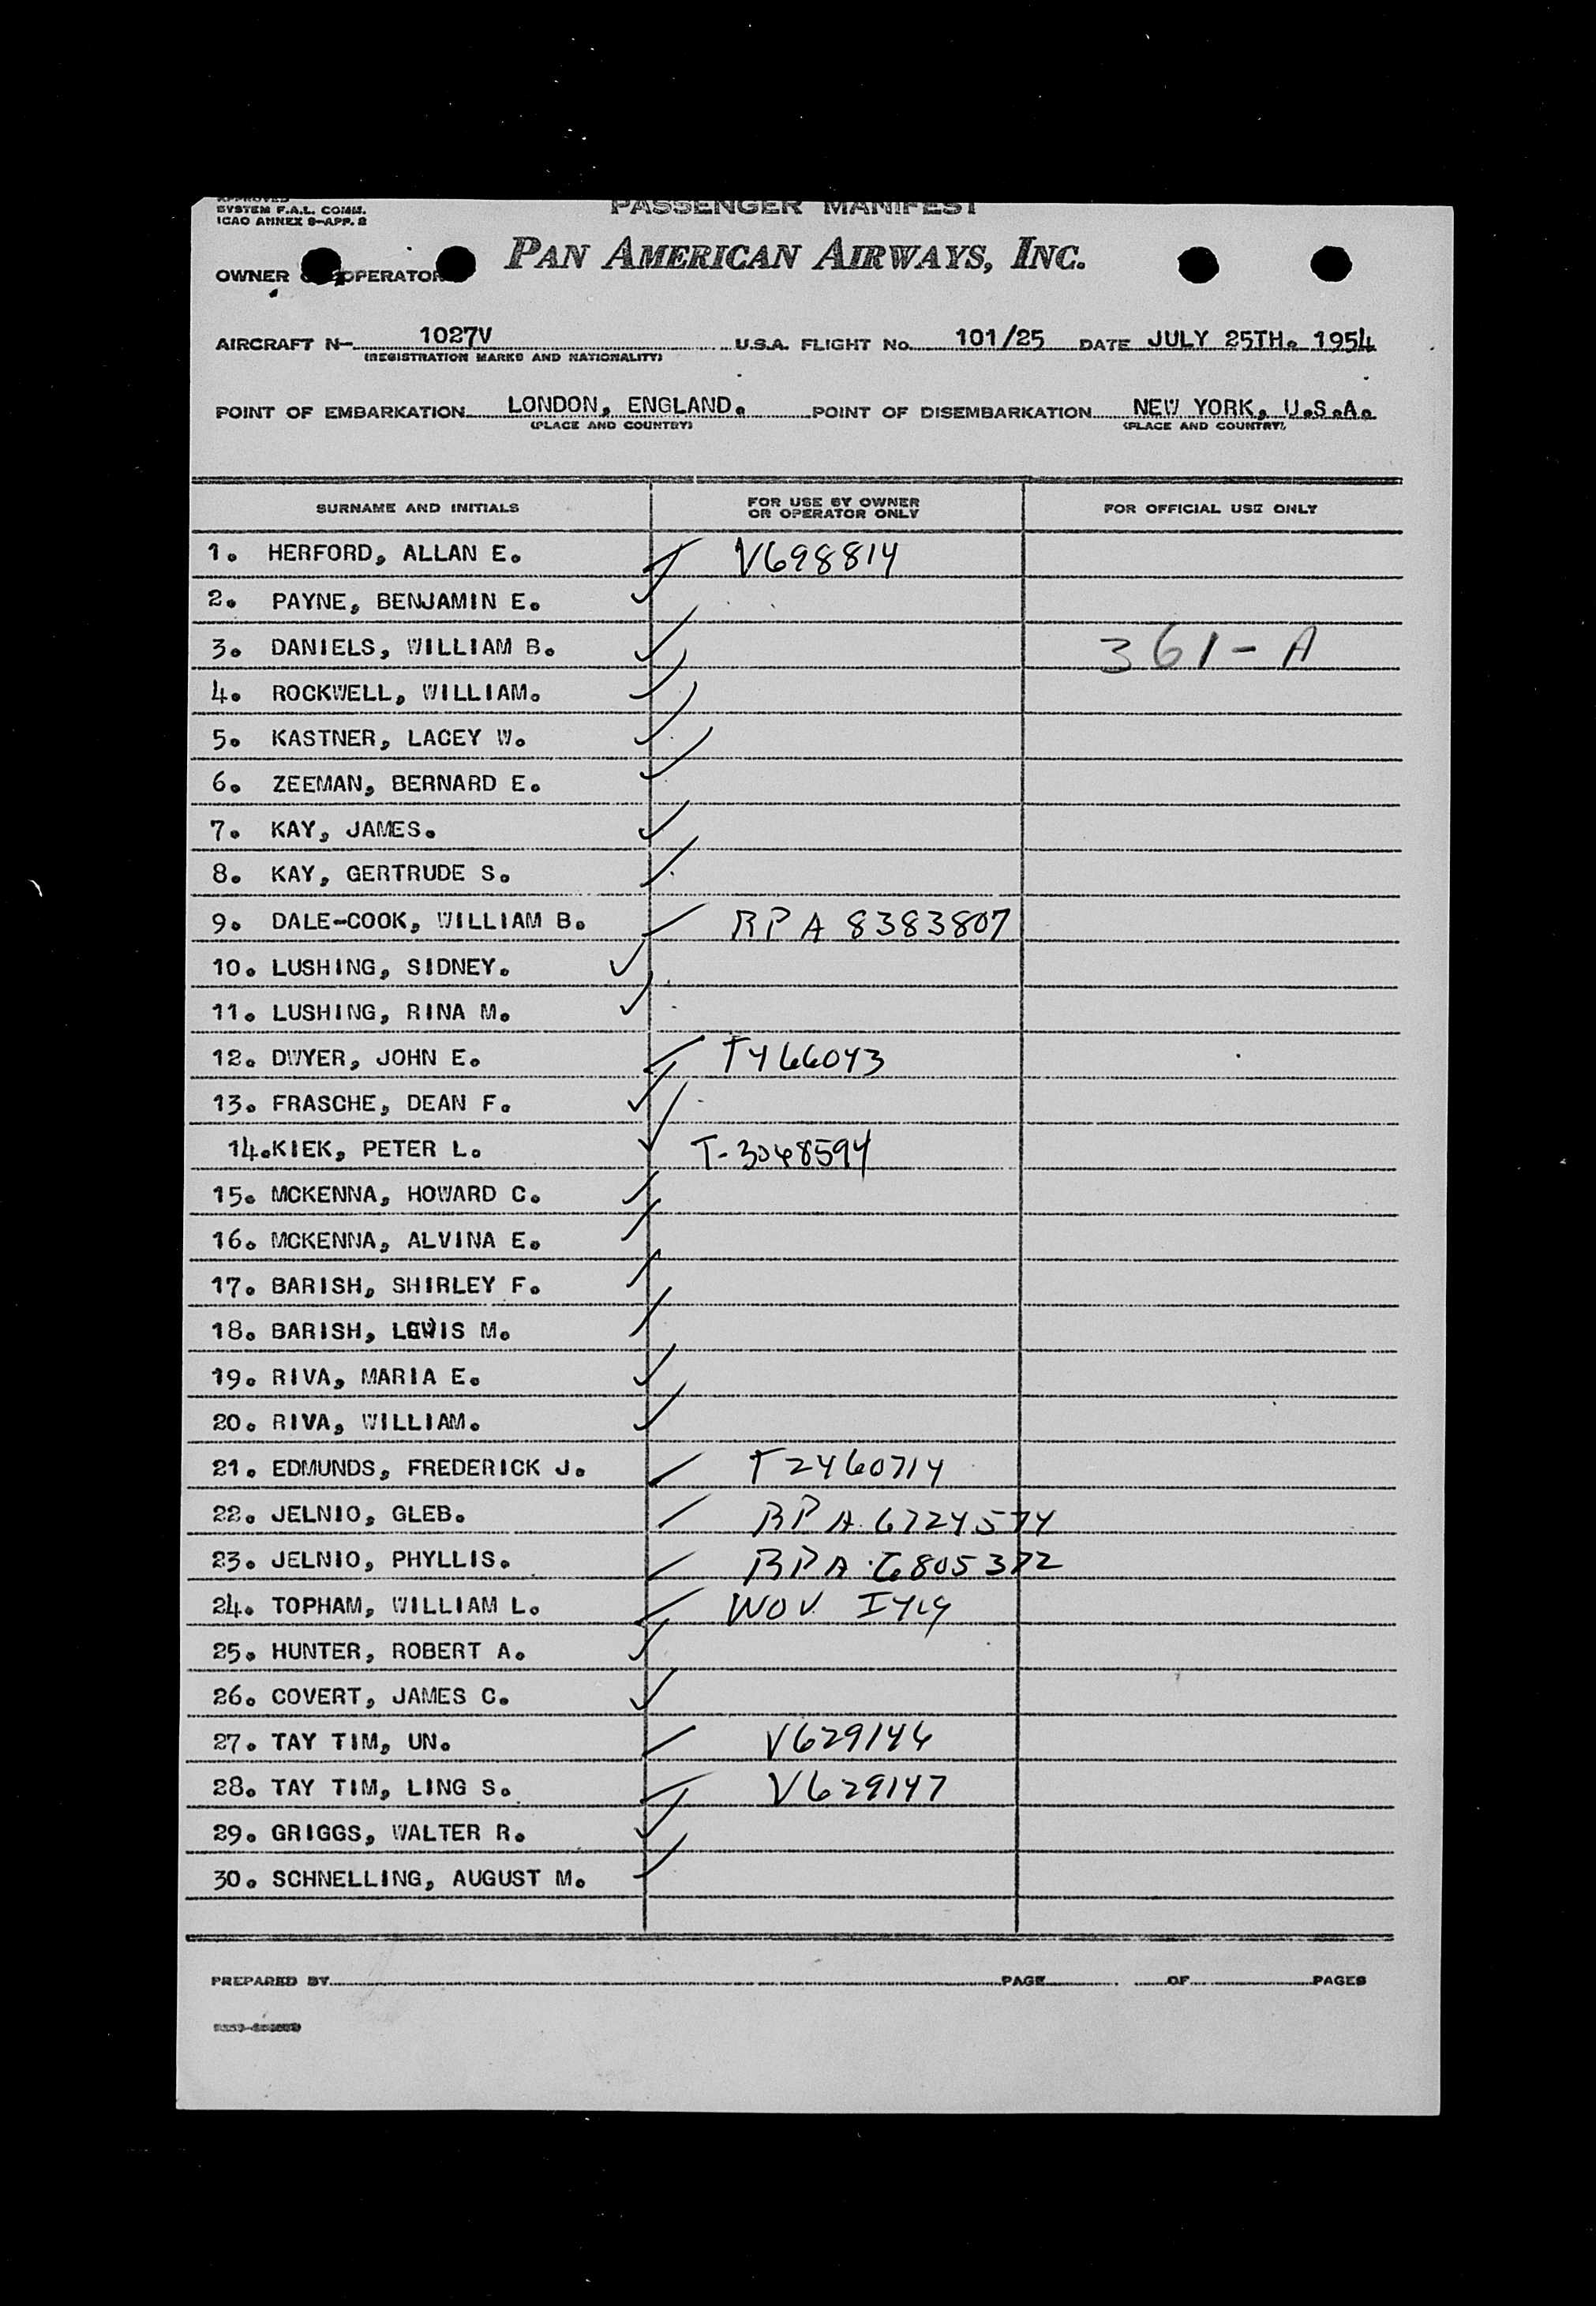 APPROVED
SYSTEM F.A.L. COMM.
ICAO ANNEX 9-APP. 2
PASSENGER MANIFEST
OWNER OPERATOR PAN AMERICAN AIRWAYS, INC.
AIRCRAFT N- 1027V U.S.A. FLIGHT No. 101/25 DATE JULY 25TH. 1954
(REGISTRATION MARKS AND NATIONALITY)
POINT OF EMBARKATION LONDON, ENGLAND. POINT OF DISEMBARKATION NEW YORK, U.S.A.
(PLACE AND COUNTRY) (PLACE AND COUNTRY)
SURNAME AND INITIALS FOR USE BY OWNER OR OPERATOR ONLY FOR OFFICIAL USE ONLY
1. HERFORD, ALLAN E. V698814
2. PAYNE, BENJAMIN E.
3. DANIELS, WILLIAM B. 361-A
4. ROCKWELL, WILLIAM.
5. KASTNER, LACEY W.
6. ZEEMAN, BERNARD E.
7. KAY, JAMES.
8. KAY, GERTRUDE S.
9. DALE-COOK, WILLIAM B. RPA 8383807
10. LUSHING, SIDNEY.
11. LUSHING, RINA M.
12. DWYER, JOHN E. T466043
13. FRASCHE, DEAN F.
14. KIEK, PETER L. T-3048594
15. MCKENNA, HOWARD C.
16. MCKENNA, ALVINA E.
17. BARISH, SHIRLEY F.
18. BARISH, LEWIS M.
19. RIVA, MARIA E.
20. RIVA, WILLIAM.
21. EDMUNDS, FREDERICK J. T2460714
22. JELNIO, GLEB. RPA 6724574
23. JELNIO, PHYLLIS. RPA 6805372
24. TOPHAM, WILLIAM L. WOV
25. HUNTER, ROBERT A.
26. COVERT, JAMES C.
27. TAY TIM, UN. V629146
28. TAY TIM, LING S. V629147
29. GRIGGS, WALTER R.
30. SCHNELLING, AUGUST M.
PREPARED BY PAGE OF PAGES